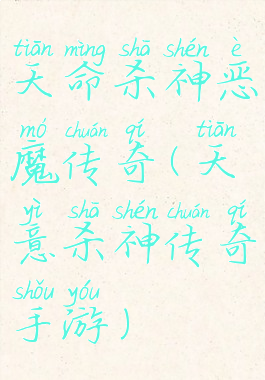 tiān mìng shā shén è
天命杀神恶
mó chuán qí tiān
魔传奇(天
yì shā shén chuán qí
意杀神传奇
shǒu yóu
手游)